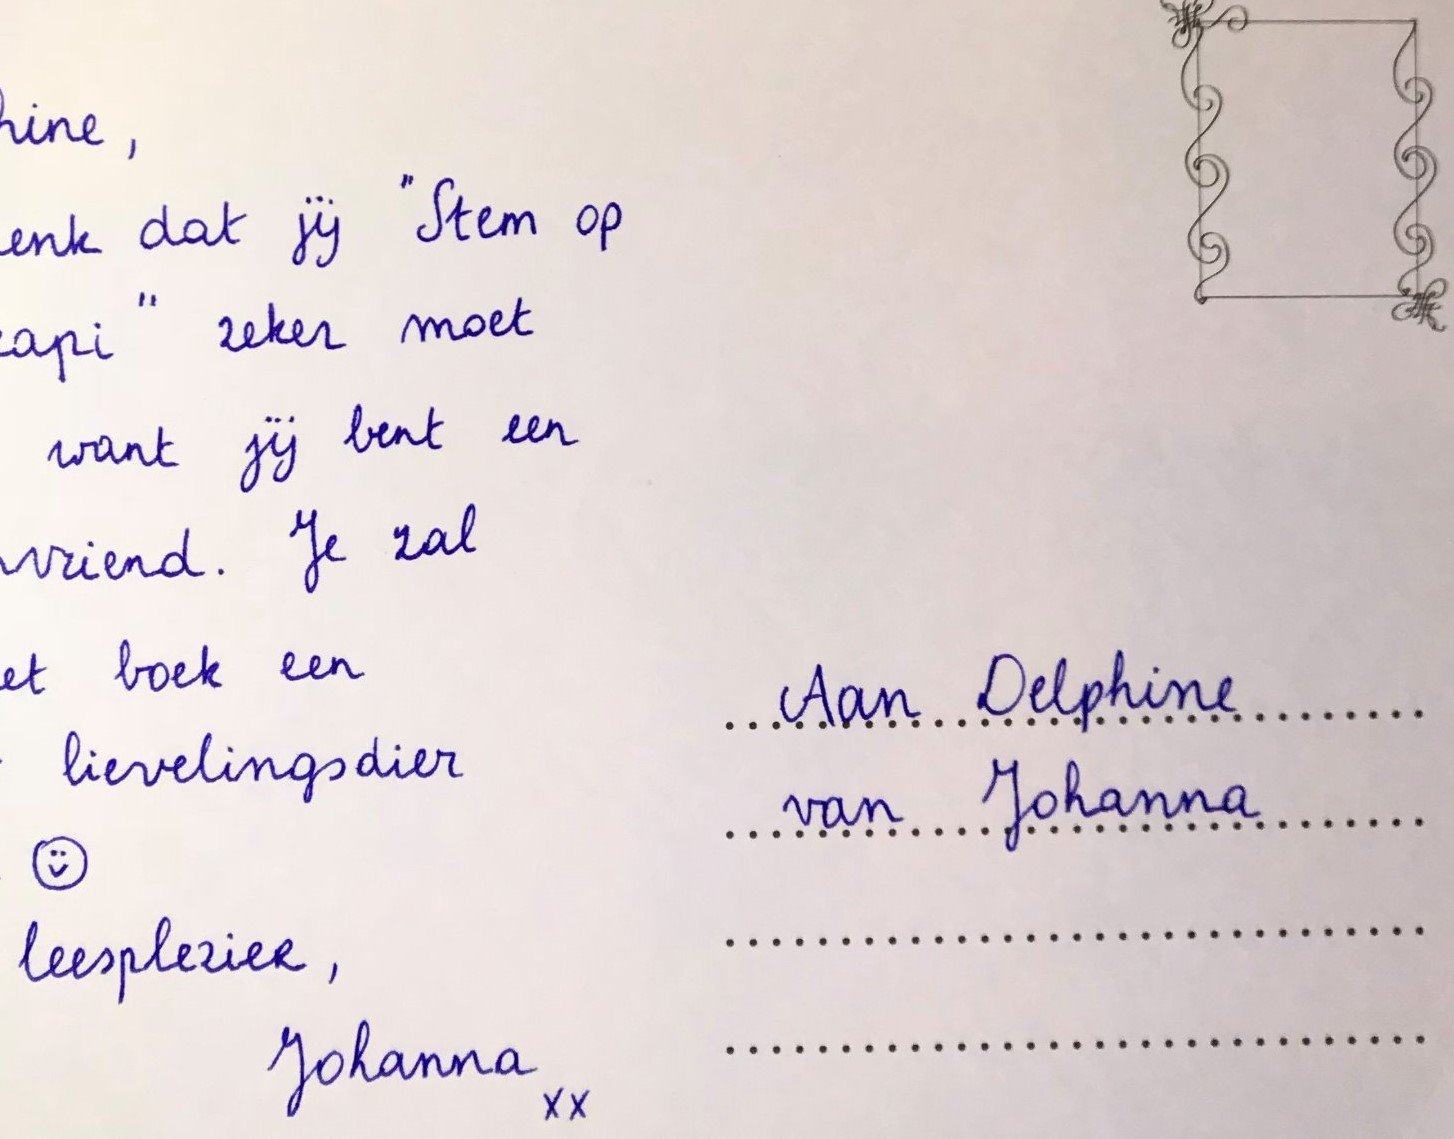 hine,
enk dat jij "Stem op
kapi" zeker moet
want jij bent een
nvriend. Je zal
et boek een
lievelingsdier
leesplezier,
Johanna
xx
Aan Delphine
van Johanna